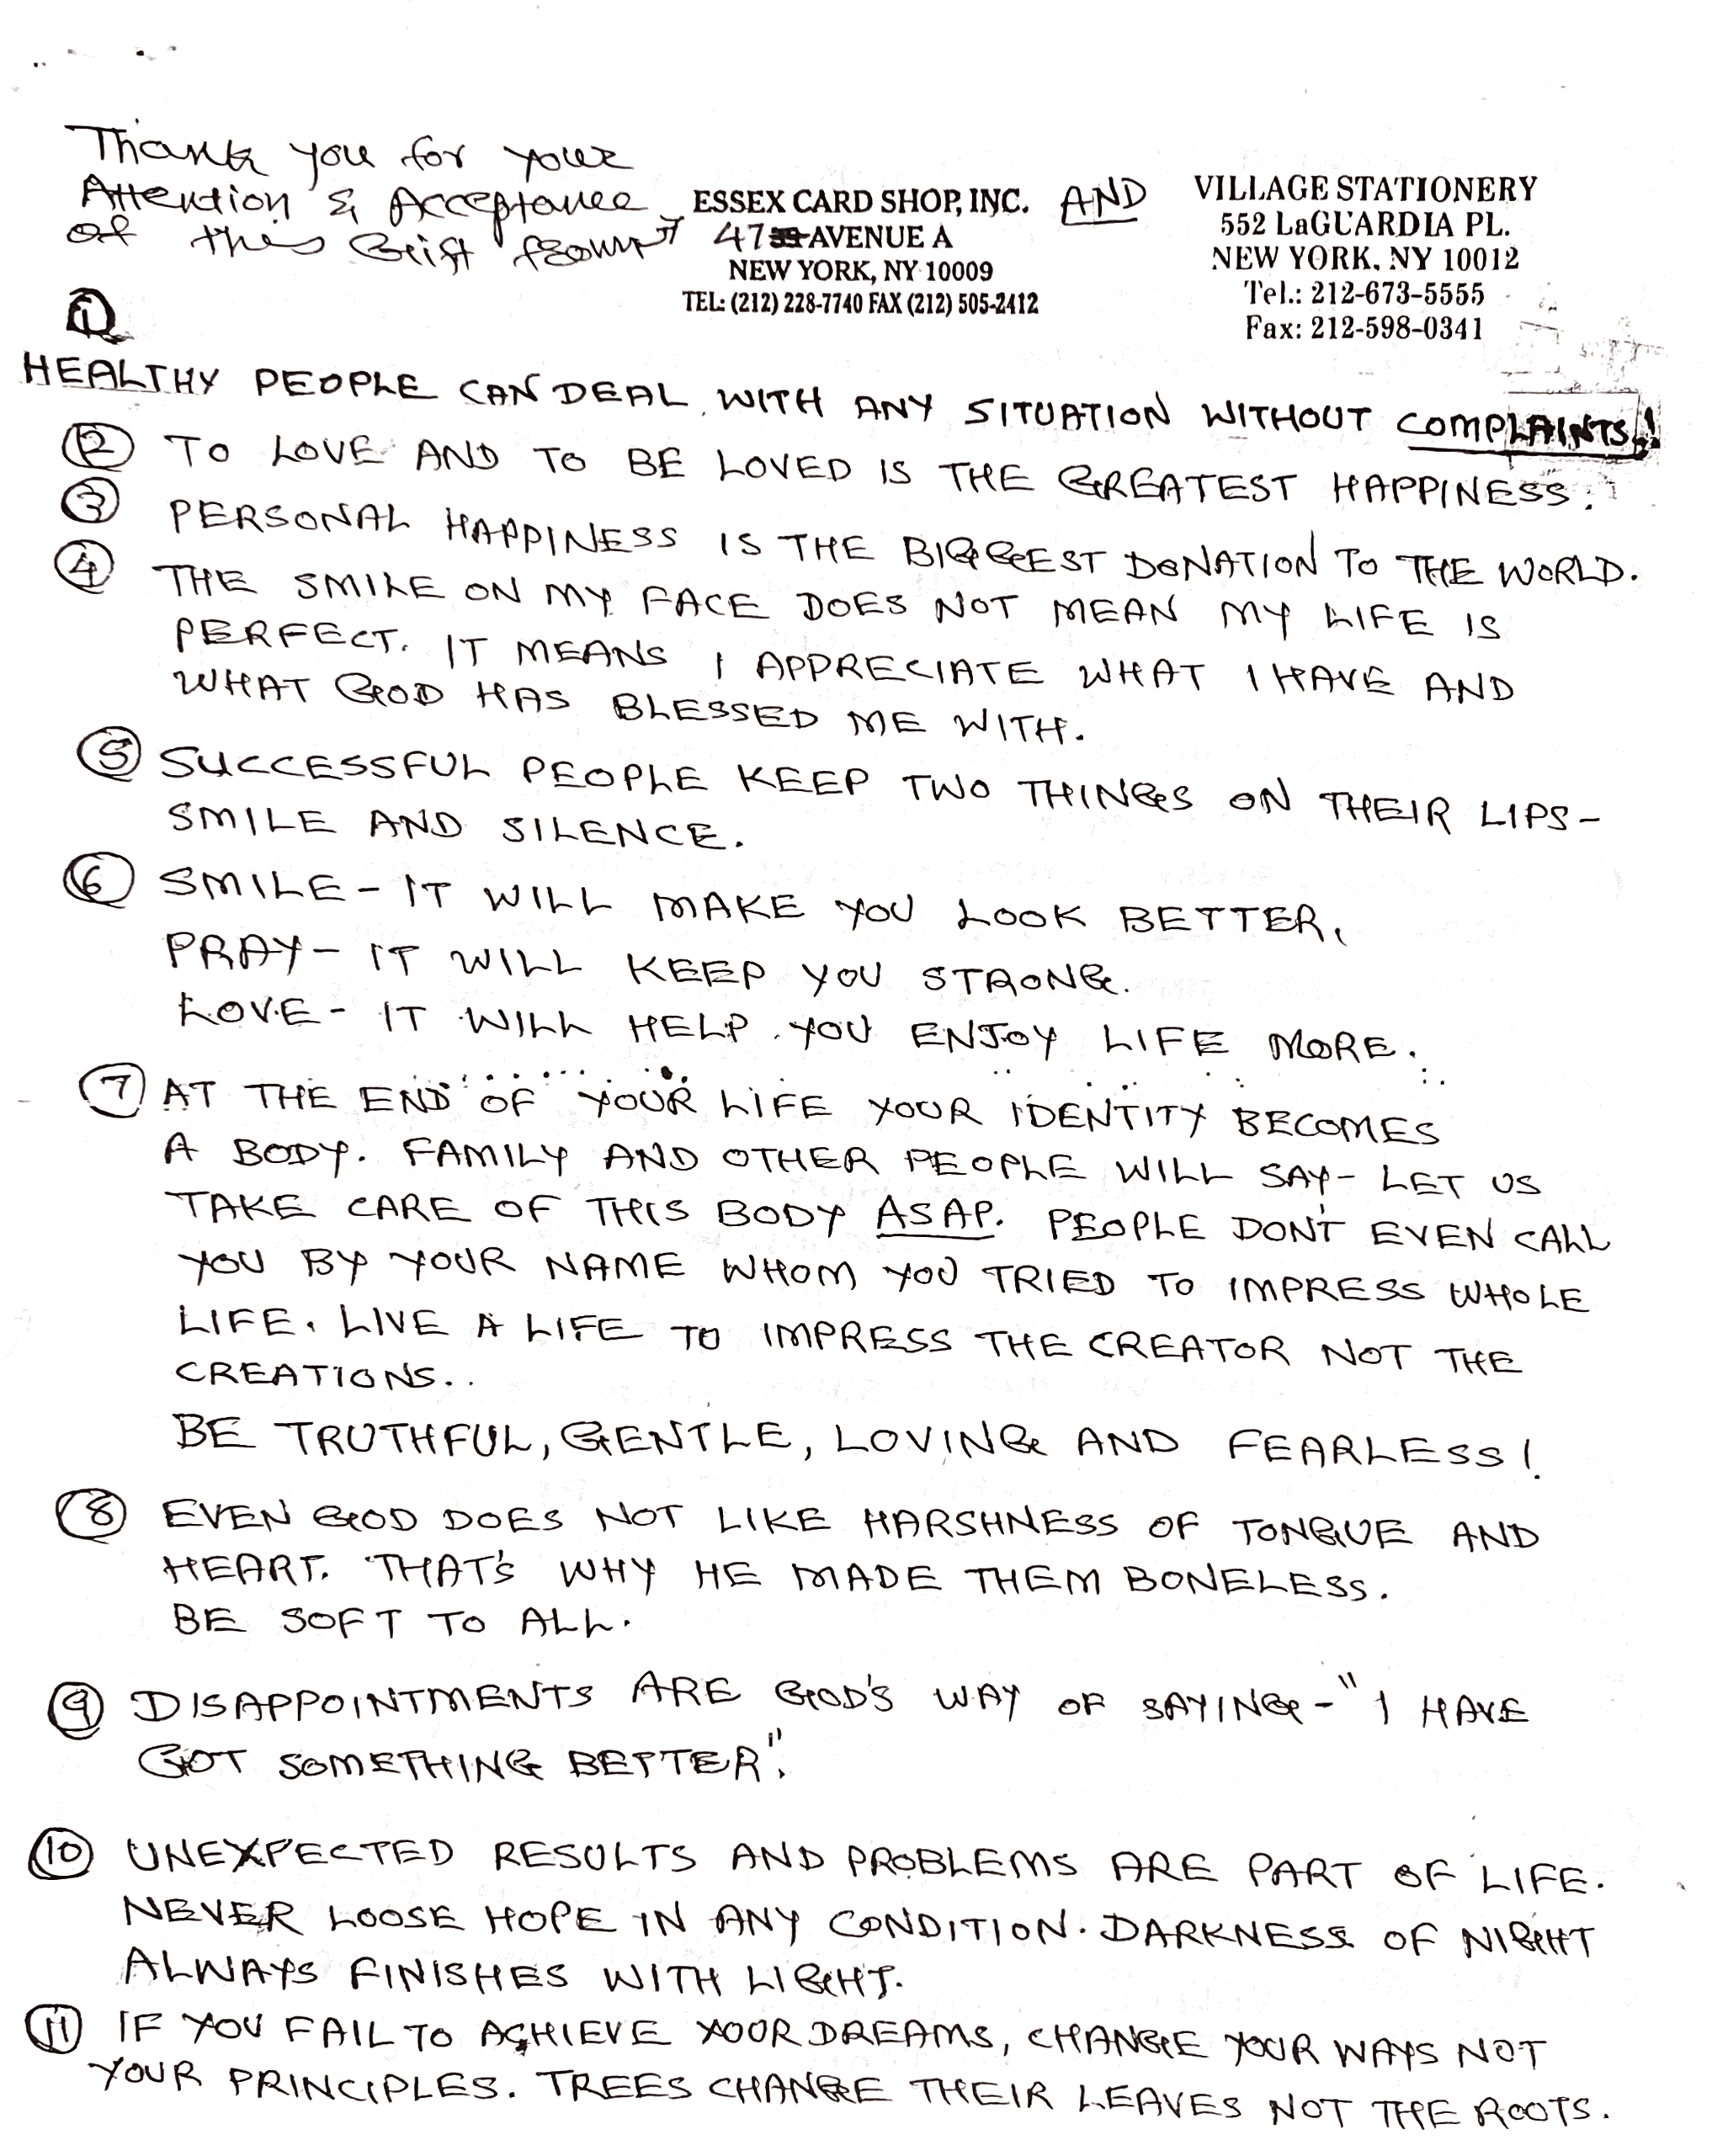 Thank you for your
Attention & Acceptance
of this Gift from
ESSEX CARD SHOP, INC.
47 39 AVENUE A
NEW YORK, NY 10009
TEL: (212) 228-7740 FAX (212) 505-2412
AND
VILLAGE STATIONERY
552 LaGUARDIA PL.
NEW YORK, NY 10012
Tel.: 212-673-5555
Fax: 212-598-0341
1
HEALTHY PEOPLE CAN DEAL WITH ANY SITUATION WITHOUT COMPLAINTS!
2 TO LOVE AND TO BE LOVED IS THE GREATEST HAPPINESS.
3 PERSONAL HAPPINESS IS THE BIGGEST DONATION TO THE WORLD.
4 THE SMILE ON MY FACE DOES NOT MEAN MY LIFE IS
PERFECT. IT MEANS I APPRECIATE WHAT I HAVE AND
WHAT GOD HAS BLESSED ME WITH.
5 SUCCESSFUL PEOPLE KEEP TWO THINGS ON THEIR LIPS-
SMILE AND SILENCE.
6 SMILE - IT WILL MAKE YOU LOOK BETTER,
PRAY - IT WILL KEEP YOU STRONG.
LOVE - IT WILL HELP YOU ENJOY LIFE MORE.
7 AT THE END OF YOUR LIFE YOUR IDENTITY BECOMES
A BODY. FAMILY AND OTHER PEOPLE WILL SAY - LET US
TAKE CARE OF THIS BODY ASAP. PEOPLE DON'T EVEN CALL
YOU BY YOUR NAME WHOM YOU TRIED TO IMPRESS WHOLE
LIFE. LIVE A LIFE TO IMPRESS THE CREATOR NOT THE
CREATIONS..
BE TRUTHFUL, GENTLE, LOVING AND FEARLESS!
8 EVEN GOD DOES NOT LIKE HARSHNESS OF TONGUE AND
HEART. THAT'S WHY HE MADE THEM BONELESS.
BE SOFT TO ALL.
9 DISAPPOINTMENTS ARE GOD'S WAY OF SAYING - "I HAVE
GOT SOMETHING BETTER".
10 UNEXPECTED RESULTS AND PROBLEMS ARE PART OF LIFE.
NEVER LOOSE HOPE IN ANY CONDITION. DARKNESS OF NIGHT
ALWAYS FINISHES WITH LIGHT.
11 IF YOU FAIL TO ACHIEVE YOOR DREAMS, CHANGE YOUR WAYS NOT
YOUR PRINCIPLES. TREES CHANGE THEIR LEAVES NOT THE ROOTS.